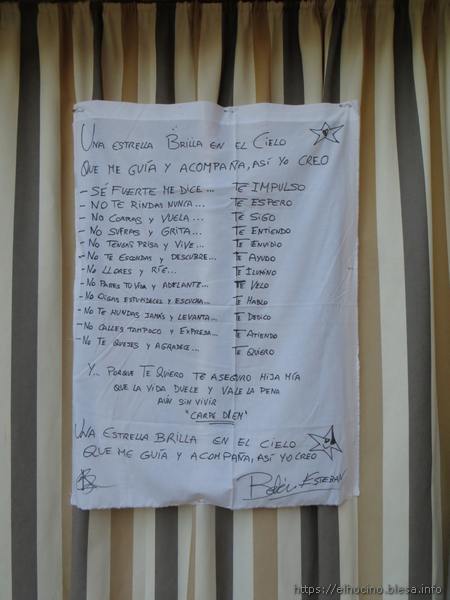 UNA ESTRELLA BRILLA EN EL CIELO
QUE ME GUÍA Y ACOMPAÑA, ASÍ YO CREO
- SÉ FUERTE ME DICE... TE IMPULSO
- NO TE RINDAS NUNCA... TE ESPERO
- NO CORRAS Y VUELA... TE SIGO
- NO SUFRAS Y GRITA... TE ENTIENDO
- NO TENGAS PRISA Y VIVE... TE ENVIDIO
- NO TE ESCONDAS Y DESCUBRE... TE AYUDO
- NO LLORES Y RÍE... TE ILUMINO
- NO PARES TU VIDA Y ADELANTE... TE VELO
- NO OIGAS ESTUPIDECES Y ESCUCHA... TE HABLO
- NO TE HUNDAS JAMÁS Y LEVANTA... TE DEDICO
- NO CALLES TAMPOCO Y EXPRESA... TE ATIENDO
- NO TE QUEJES Y AGRADECE... TE QUIERO
Y... PORQUE TE QUIERO TE ASEGURO HIJA MÍA
QUE LA VIDA DUELE Y VALE LA PENA
AÚN SIN VIVIR
"CARPE DIEM"
UNA ESTRELLA BRILLA EN EL CIELO
QUE ME GUÍA Y ACOMPAÑA, ASÍ YO CREO
Belén ESTEBAN
https://elhocino.blesa.info